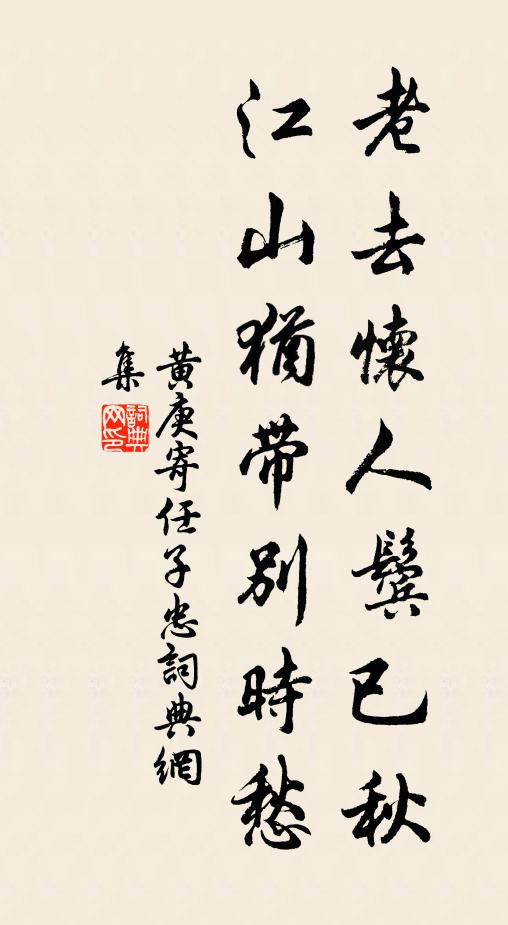 老去懷人鬢已秋
江山猶帶別時愁
黃庚寄任子忠詞典網
集
詞典
网印